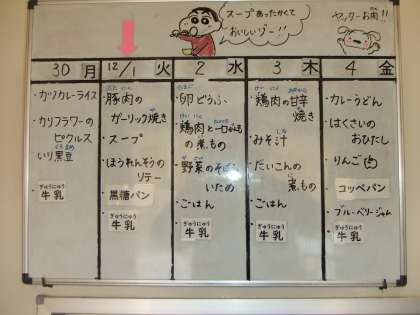 スープ あったかくて
おいしいゾー!!
ヤッターお肉!!
30 月
12/1 火
2 水
3 木
4 金
・カツカレーライス
・カリフラワーの
ピクルス
・いり黒豆
牛乳
ぎゅうにゅう
・豚肉の
ガーリック焼き
・スープ
・ほうれんそうの
ソテー
・黒糖パン
・牛乳
ぎゅうにゅう
・卵どうふ
・鶏肉と
の煮もの
・野菜の
いため
・ごはん
・牛乳
ぎゅうにゅう
・鶏肉の甘辛
焼き
・みそ汁
・だいこんの
煮もの
・ごはん
・牛乳
ぎゅうにゅう
・カレーうどん
・はくさいの
おひたし
・りんご
・コッペパン
・ブルーベリージャム
・牛乳
ぎゅうにゅう